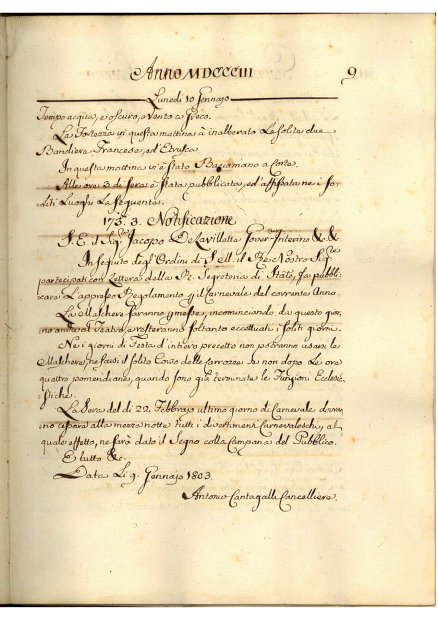 Anno MDCCCIII 9
Lunedi 10 Gennajo
Tempo acqua, e oscuro, e vento a Greco.
La Fortezza in questa mattina à inalberato la solita due
Bandiere Francese, ed Etrusca
In questa mattina vi è stato Baciamano a Corte.
Alle ore 3 di sera è stata pubblicata, ed affissata ne i so-
liti Luoghi la seguente.
3. Notificazione
S. E. il Sig.r Jacopo De Lavilletta Gover. Interino &. &.
In seguito degl'Ordini di S. e il Re Nostro Sig.re
partecipati con Lettera della R. Segreteria di Stato, fa pubbli-
care l'appresso Regolamento p il Carnevale del corrente Anno.
Le Maschere saranno permesse, incominciando da questo gior-
no ai Teatri e resteranno soltanto eccettuati i soliti giorni.
Ne i giorni di Festa d'intiero precetto non potranno usarsi le
Maschere, ne farsi il solito Corso delle Carrozze se non dopo le ore
quattro pomeridiane, quando sono già terminate le Funzioni Eccle-
siastiche.
La Sera del di 22. Febbrajo ultimo giorno di Carnevale dovran-
no cessare alla mezza notte tutti i divertimenti Carnevaleschi, al
quale effetto, ne sarà dato il Segno colla Campana del Pubblico.
E tutto &c.
Data Li 9. Gennajo 1803.
Antonio Cantagalli Cancelliere.